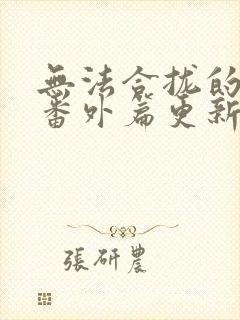 無法合拢的
番外篇更新
張研農